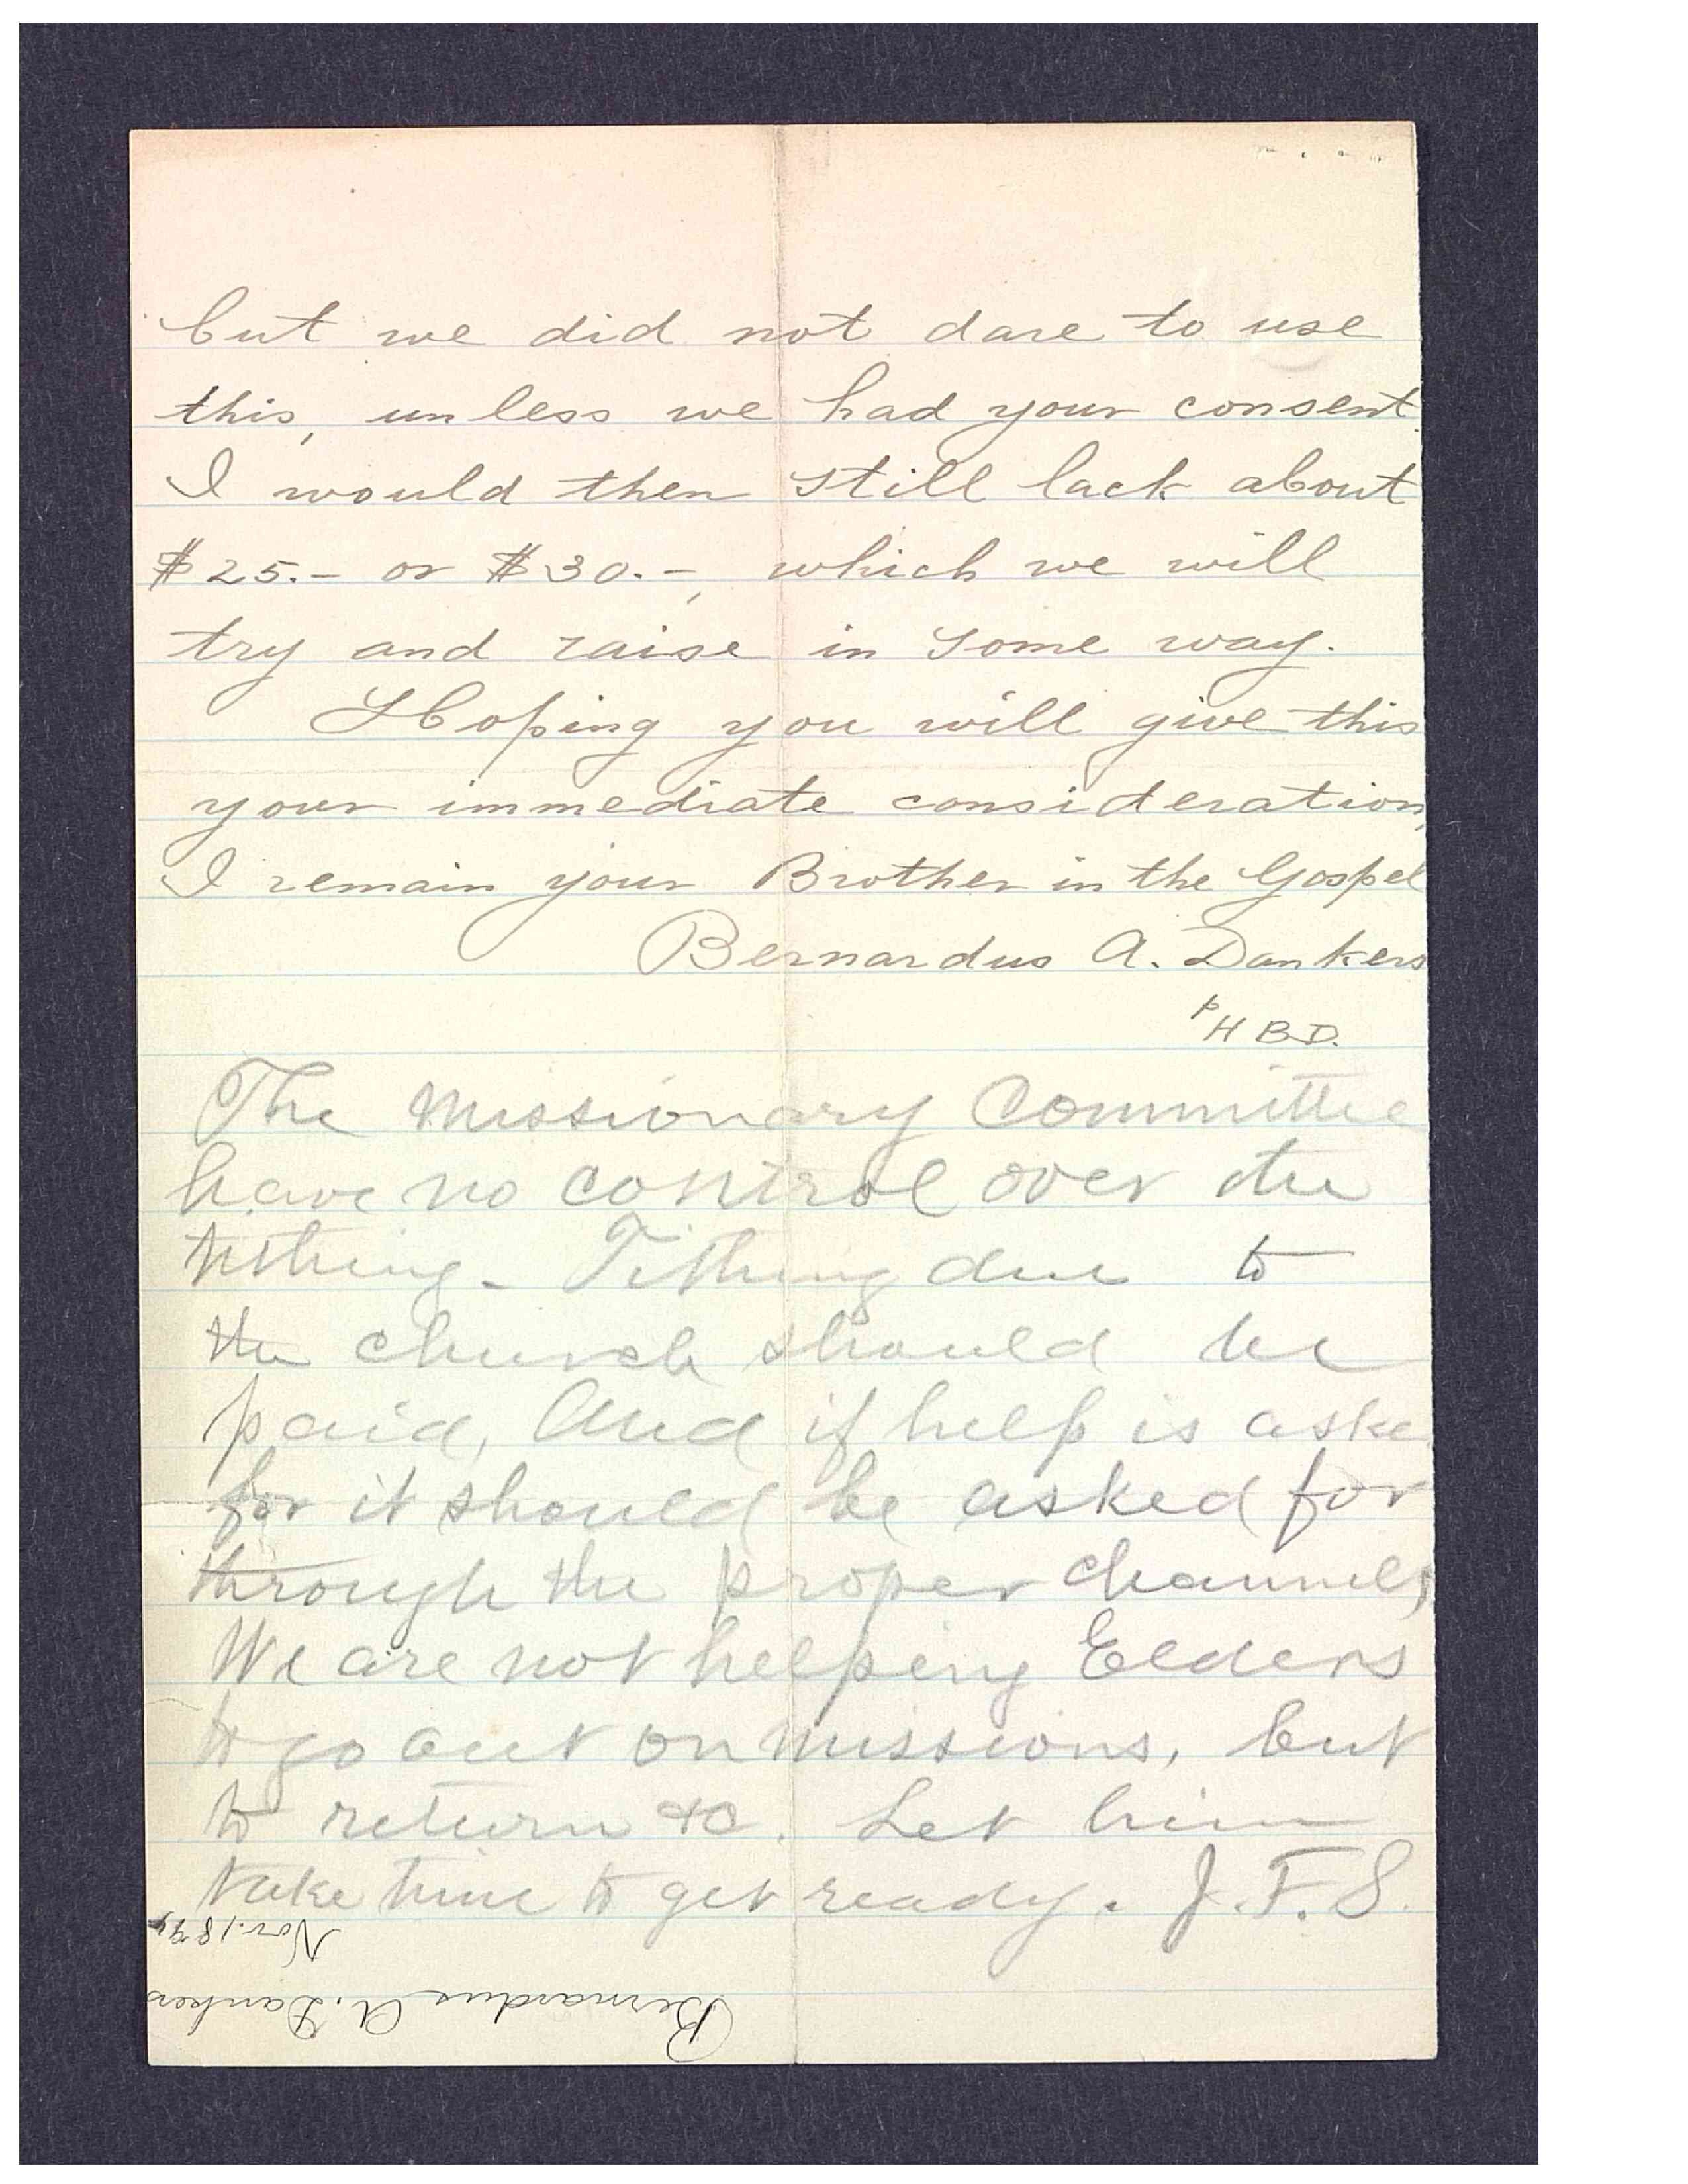 but we did not dare to use
this, unless we had your consent.
I would then still lack about
$25.- or $30.-, which we will
try and raise in some way.
Hoping you will give this
your immediate consideration,
I remain your Brother in the Gospel
Bernardus A. Dankers
p H B D.
The Missionary Committee
have no control over the
tithing - Tithing due to
the church should be
paid, And if help is aske
for it should be asked for
through the proper channels,
We are not helping Elders
to go out on missions, but
to return &c. Let him
take time to get ready. J. F. S.
Bernardus A. Dankers
Nov.